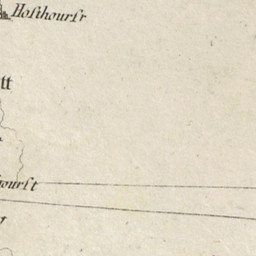 Hoſihourſr
tt
hourſt